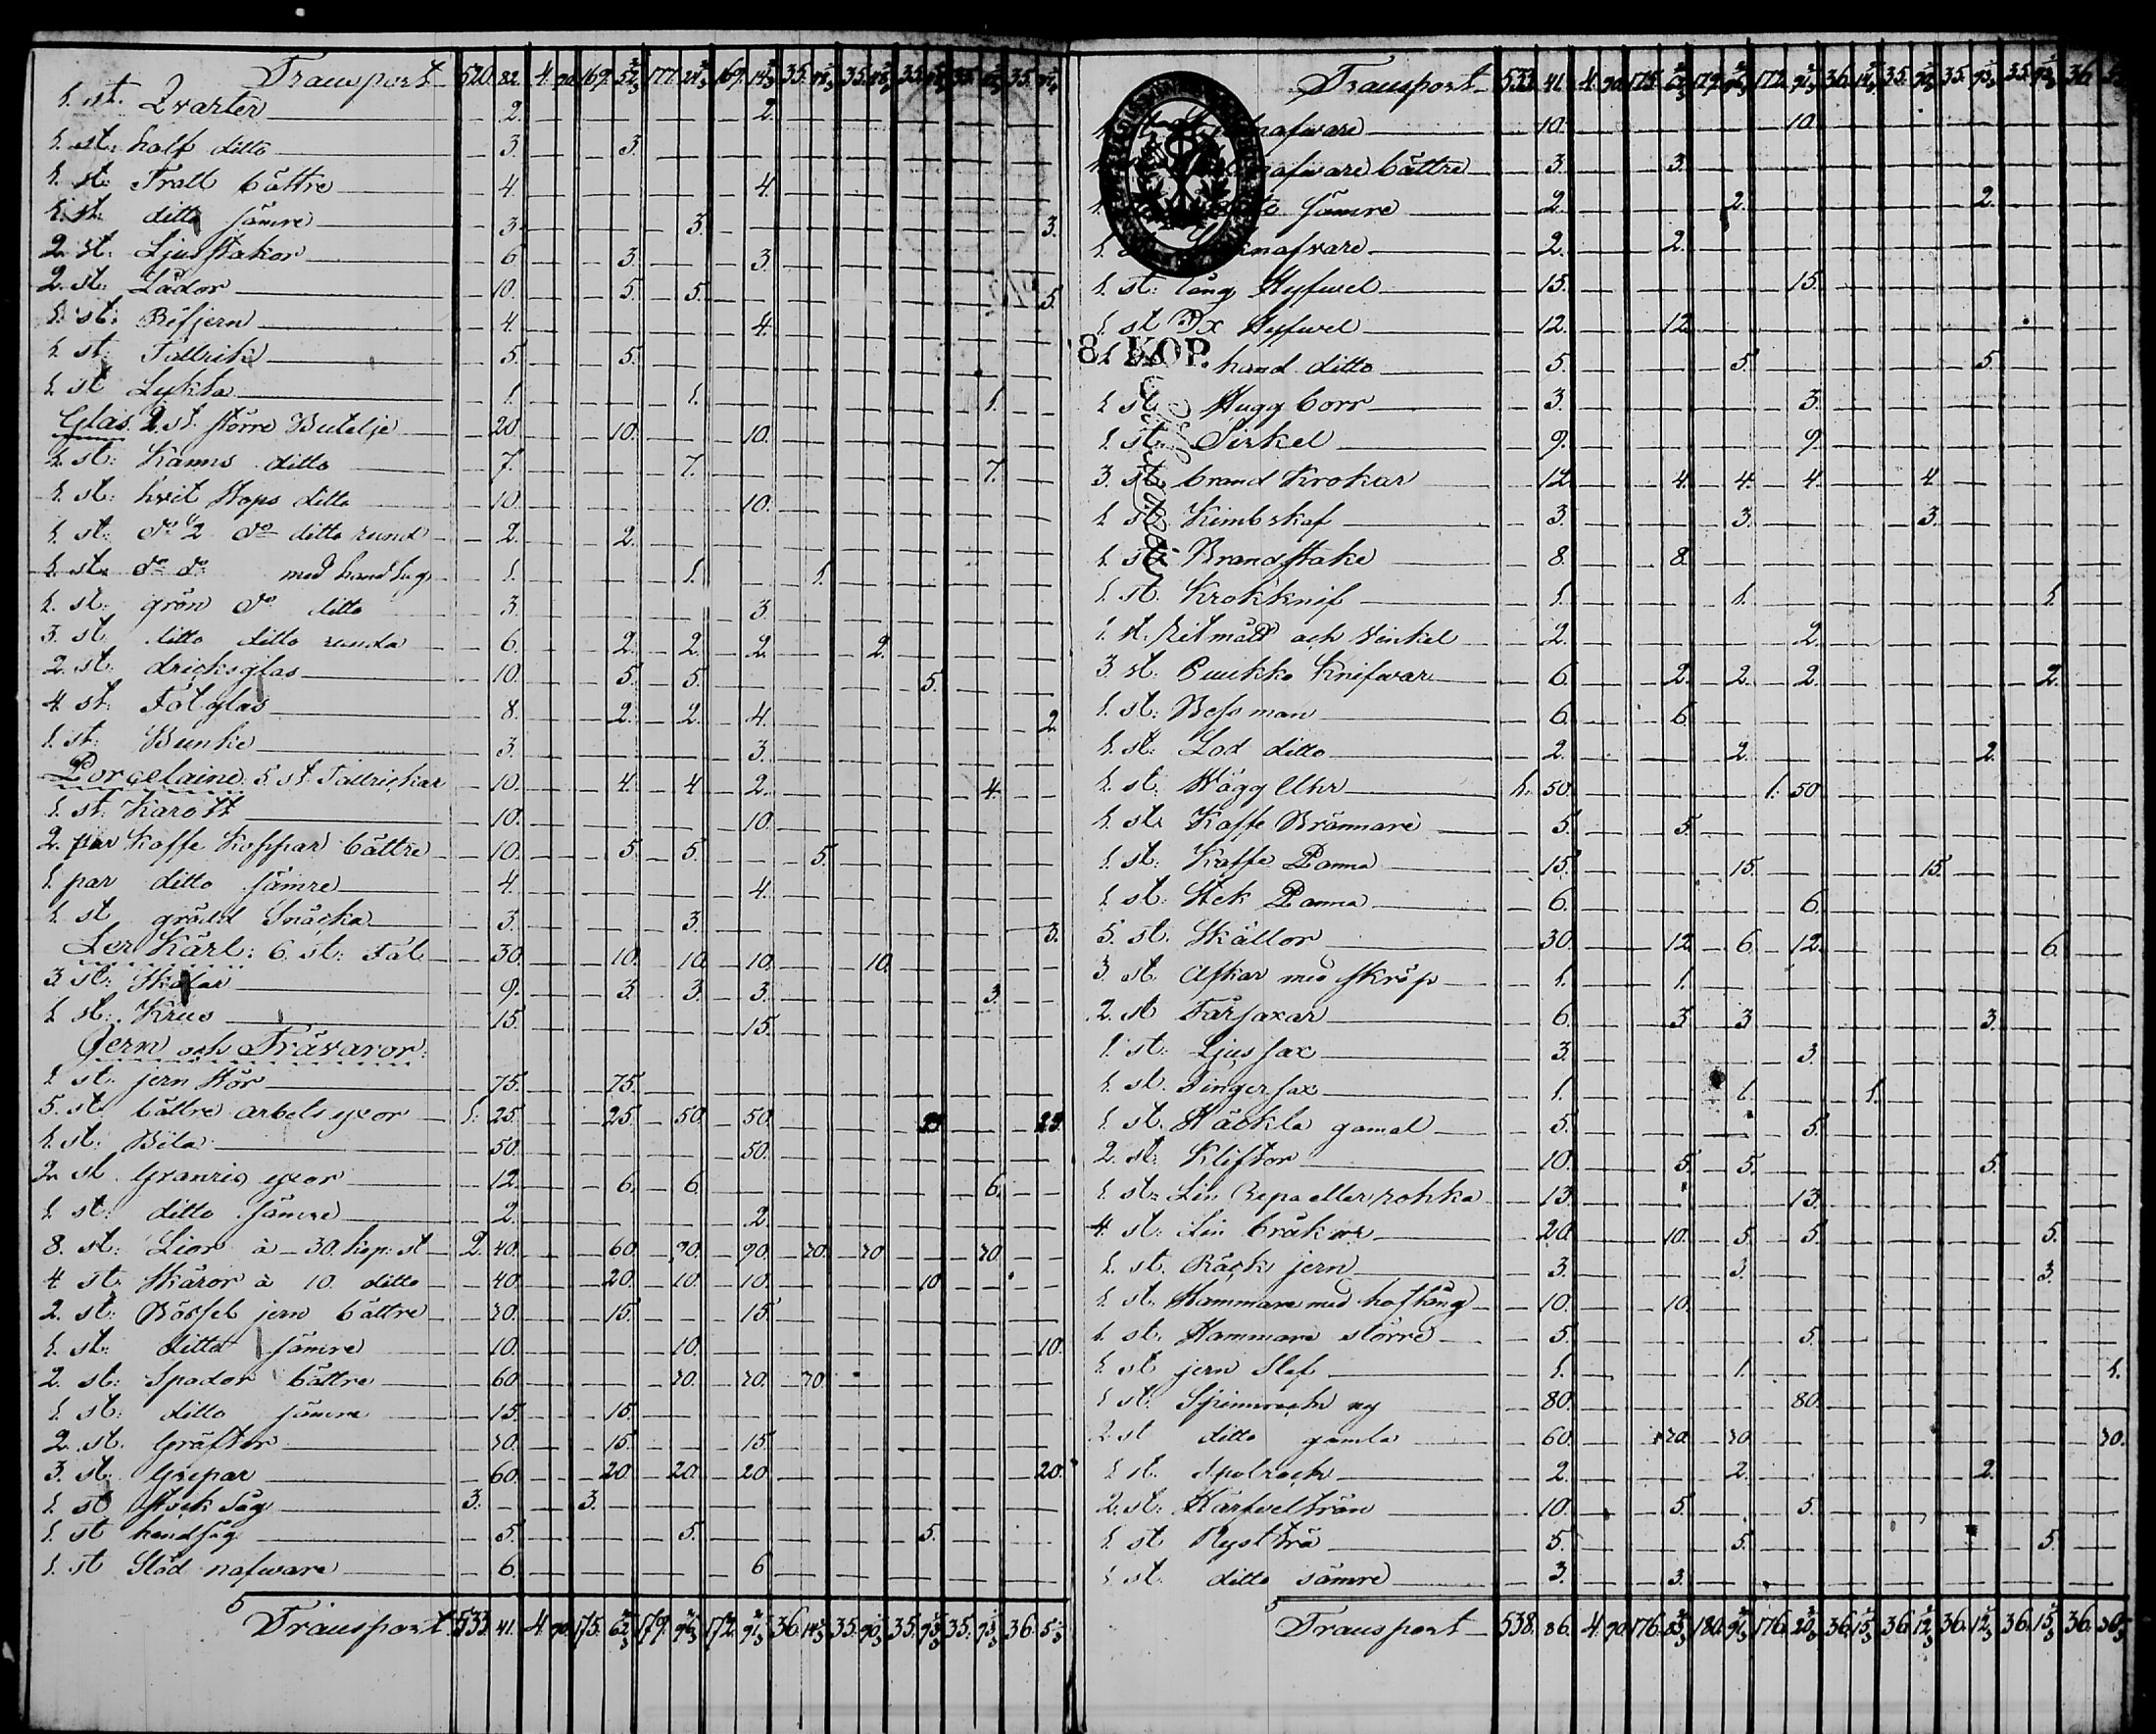 Transport 520. 82. 4. 90. 169. 177. 169. 35. 35. 35. 35. 35.
1. st. Qvarter 2. 2.
1. st: half ditto 3. 3.
1. st: Tratt bättre 4. 4.
1. st: ditto sämre 3. 3. 3.
2. st: Ljusstakor 6. 3. 3.
2. st: Lådor 10. 5. 5. 5.
1. st: Rifjern 4. 4.
1. st: Tallrik 5. 5.
1. st Lykta 1. 1. 1.
Glas. 2. st. större Butelje 20. 10. 10.
1. st: Kanns ditto 7. 7. 7.
1. st: hvit Stops ditto 10. 10.
1. st: do 1/2 do ditto rund 2. 2.
1. st: do do med handtag 1. 1. 1.
1. st: grön do ditto 3. 3.
3. st ditto ditto runda 6. 2. 2. 2. 2.
2. st: dricksglas 10. 5. 5. 5.
4 st: Fotglas 8. 2. 2. 4. 2.
1. st: Bunke 3. 3.
Porcelaine. 5 st. Tallrickar 10. 4. 4. 2. 4.
1. st: Karott 10. 10.
2. par Kaffe Koppar bättre 10. 5. 5. 5.
1. par ditto sämre 4. 4.
1. st grädd Snäcka 3. 3. 3.
Ler Kärl: 6. st: Fat 30. 10. 10. 10. 10.
3 st: Skålar 9. 3. 3. 3. 3.
1 st: Krus 15. 15.
Jern och Trävaror:
1. st. jern Stör 75. 75.
5. st. bättre arbets yxor 1. 25. 25. 50. 50. 25. 25.
1. st: Bila 50. 50.
2. st Granris yxor 12. 6. 6. 6.
1. st: ditto sämre 2. 2.
8. st: Lior à 30. kop: st 2. 40. 60. 90. 90. 30. 30. 30.
4 st: Skäror à 10 ditto 40. 20. 10. 10. 10.
2. st: jern bättre 30. 15. 15.
1. st: ditto sämre 10. 10. 10.
2. st: Spador bättre 60. 30. 30. 30.
1. st: ditto sämre 15. 15.
2. st. Gräftor 30. 15. 15.
3. st: Grepar 60. 20. 20. 20. 20.
1. st Stock Såg 3. 3.
1. st handsåg 5. 5. 5.
1. st Stöd nafware 6. 6
Transport 533. 41. 4. 90. 175. 62 2/3 179. 172. 36. 35. 35. 35. 36.
Transport 533. 41. 4. 90. 175. 179. 172. 36. 35. 35. 35. 36.
nafware 10. 10.
nafware bättre 3. 3.
sämre 2. 2. 2.
nafware 2. 2.
1. st: lång Hyfwel 15. 15.
1. st Hyfwel 12. 12.
8 KOP.
hand ditto 5. 5. 5.
1. st Hugg borr 3. 3.
1. st: Sirkel 9. 9.
3. st. brand Krokar 12. 4. 4. 4. 4
1. st Kimbskaf 3. 3. 3.
1. st Brandstake 8. 8.
1. st. Krokknif 1. 1. 1.
1. st. Ritmått och Vinkel 2. 2.
3. st. Puukko Knifwar 6. 2. 2. 2. 2.
1. st: Bessman 6. 6.
1. st: Lod ditto 2. 2. 2.
1. st: Wägg Uhr 1. 50. 1. 50
1. st. Kaffe Brännare 5. 5.
1. st: Kaffe Panna 15. 15. 15.
1. st: Stek Panna 6. 6.
5. st. Skällor 30. 12. 6. 12. 6.
3. st. Askar med skräp 1. 1.
2. st Fårsaxar 6. 3 3. 3.
1. st: Ljus sax 3. 3.
1. st. Finger sax 1. 1. 1.
1 st. Häckla gamal 5. 5.
2. st. Kliftor 10. 5. 5. 5.
1. st: Lin Repa eller rohka 13. 13.
4. st: Lin bråkor 20. 10. 5. 5. 5.
1. st. jern 3. 3. 3.
1. st. Hammare med hoftång 10. 10.
1. st. Hammare större 5. 5.
1. st jern Slef 1. 1. 1.
1 st. Spinnrock ny 80. 80.
2. st ditto gamla 60. 30. 30. 30.
1 st. Spolrock 2. 2. 2.
2. st: 10. 5. 5.
1 st 5. 5. 5.
1 st. ditto sämre 3. 3.
Transport 538. 86. 4. 90 176. 180. 176. 36. 36. 36. 36. 36.